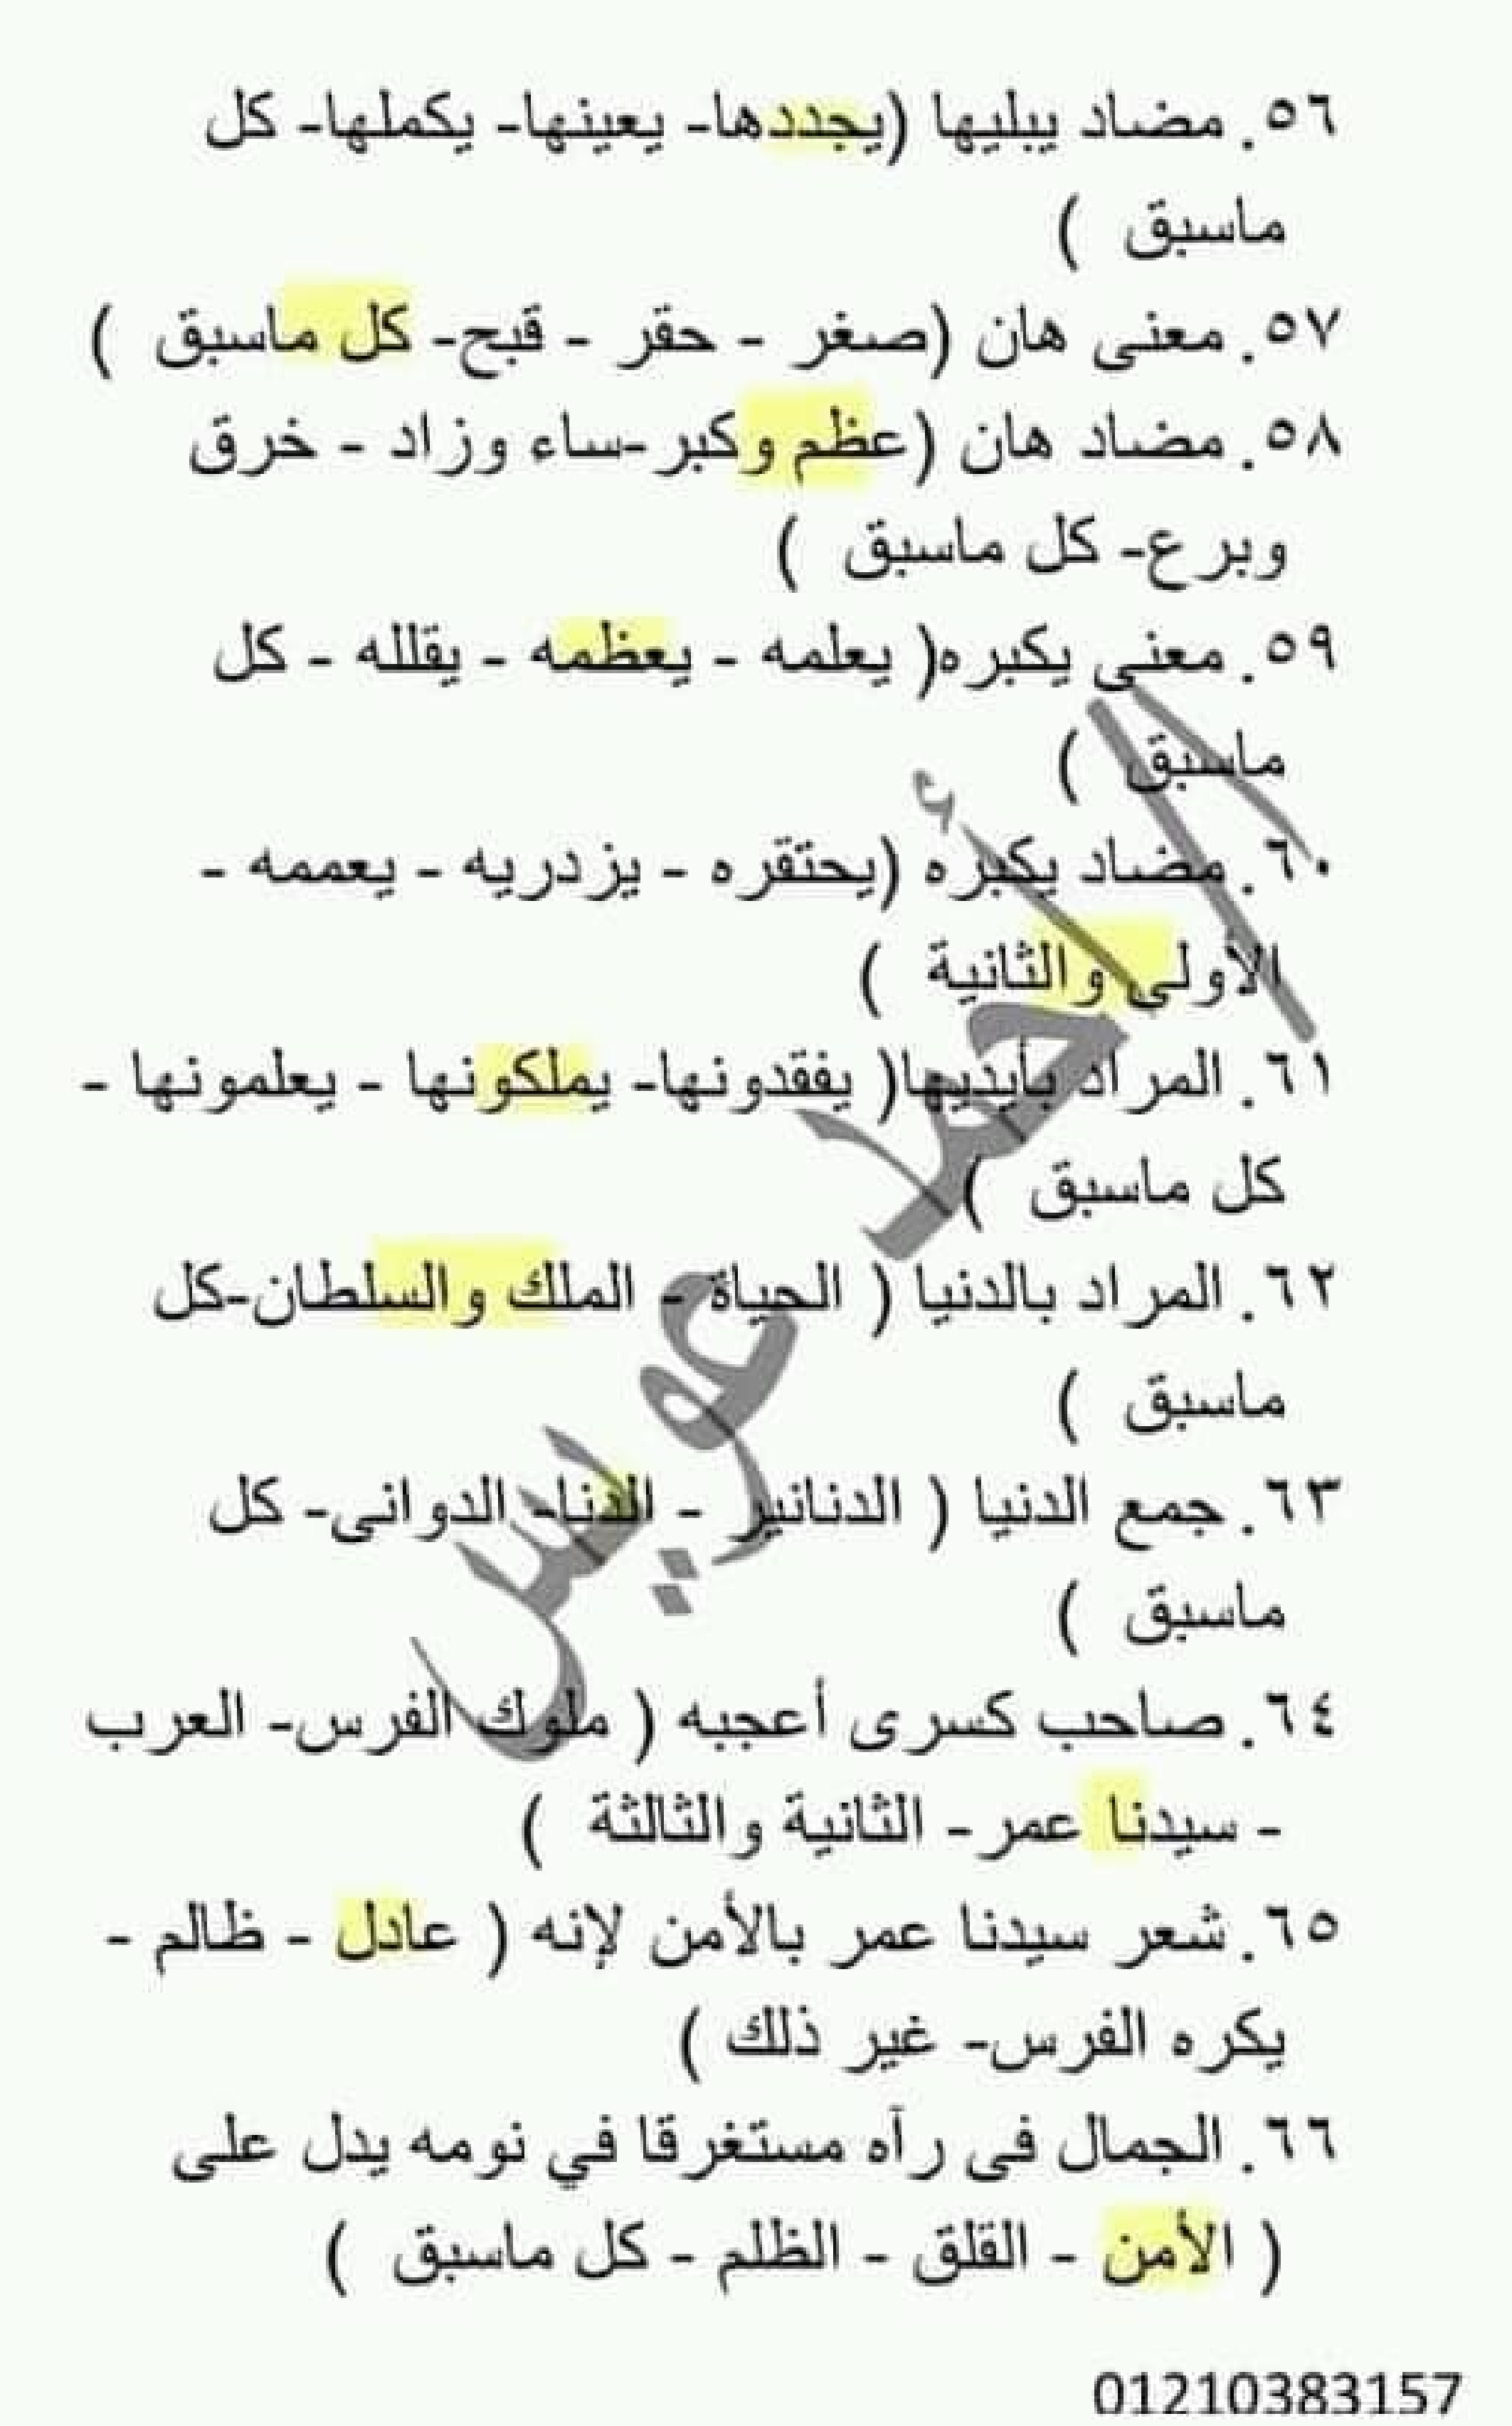 ٥٦. مضاد يبليها (يجددها- يعينها- يكملها- كل
ماسبق )
٥٧. معنى هان (صغر - حقر - قبح- كل ماسبق )
٥٨. مضاد هان (عظم وكبر-ساء وزاد - خرق
وبرع- كل ماسبق )
٥٩. معنى يكبره( يعلمه - يعظمه - يقلله - كل
ماسبق )
٦٠. مضاد يكبره (يحتقره - يزدريه - يعممه -
الأولى والثانية )
٦١. المراد بأيديها( يفقدونها- يملكونها - يعلمونها -
كل ماسبق )
٦٢. المراد بالدنيا ( الحياة - الملك والسلطان-كل
ماسبق )
٦٣. جمع الدنيا ( الدنانير - الدنا- الدوانى- كل
ماسبق )
٦٤. صاحب كسرى أعجبه ( ملوك الفرس- العرب
- سيدنا عمر- الثانية والثالثة )
٦٥. شعر سيدنا عمر بالأمن لإنه ( عادل - ظالم -
يكره الفرس- غير ذلك )
٦٦. الجمال فى رآه مستغرقا في نومه يدل على
( الأمن - القلق - الظلم - كل ماسبق )
أ/ أحمد عويس
01210383157